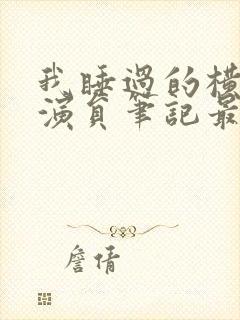 我睡過的橫
演員筆記最
詹倩